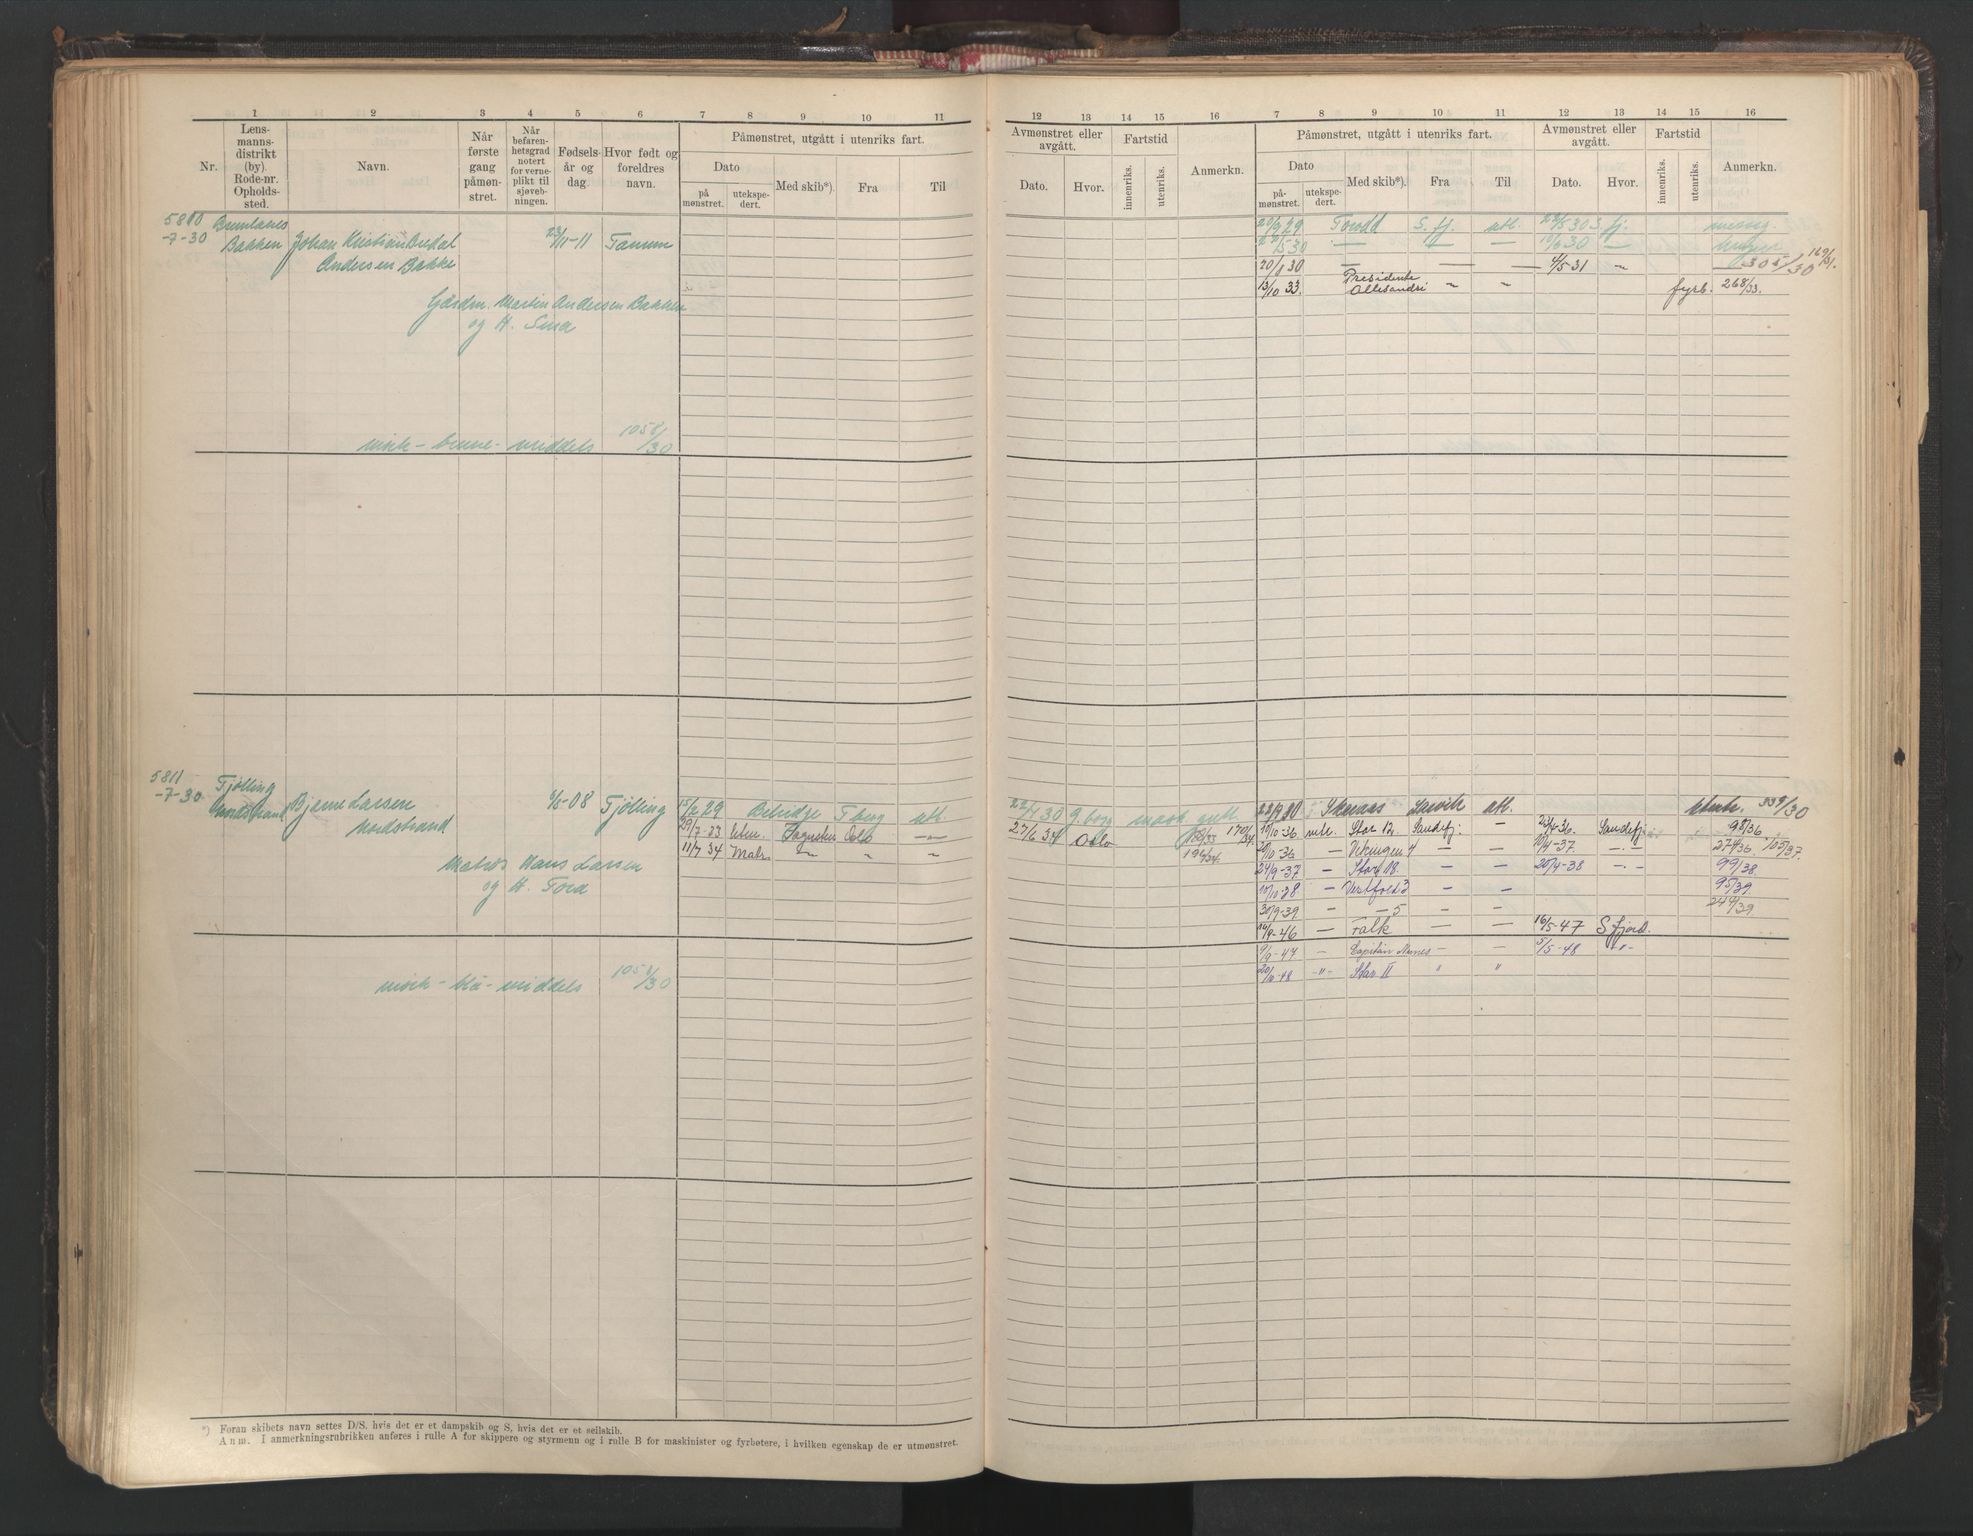 1 2 3 4 5 6 7 8 9 10 11
Nr.
Lens-
manns-
distrikt
(by)
Rode-nr.
Opholds-
sted.
Navn.
Når
første
gang
påmøn-
stret.
Når
befaren-
hetsgrad
notert
for verne-
plikt til
sjøveb-
ningen.
Fødsels-
år og
dag.
Hvor født og
foreldres
navn.
Påmønstret, utgått i utenriks fart.
Dato
på
mønstret.
utekspe-
dert.
Med skib*).
Fra
Til
5810 Brunlanes
-7-30 Bakken Johan Kristian Bredal 23/11-11 Tanum
Andersen Bakke
Gårdm. Martin Andersen Bakken
og H. Sina
mørk - brune - middels 1058/30
5811 Fjølling
-7-30 Nordstrand Bjarne Larsen 6/5-08 Fjølling 15/2 29 Belridge Tberg utl.
Nordstrand 29/7-33 Oslo —
11/7 34 Matr. " " "
Matros Hans Larsen
og H. Tora
mørk - blå - middels 1051/30
*) Foran skibets navn settes D/S, hvis det er et dampskib og S, hvis det er et seilskib.
Anm. I anmerkningsrubrikken anføres i rulle A for skippere og styrmenn og i rulle B for maskinister og fyrbøtere, i hvilken egenskap de er utmønstret.
12 13 14 15 16 7 8 9 10 11 12 13 14 15 16
Avmønstret eller
avgått.
Dato.
Hvor.
Fartstid
innenriks.
utenriks.
Anmerkn.
Påmønstret, utgått i utenriks fart.
Dato
på-
mønstret.
utekspe-
dert.
Med skib*).
Fra
Til
Avmønstret eller
avgått.
Dato.
Hvor.
Fartstid
innenriks.
utenriks.
Anmerkn.
20/9 29 Tordd S. fj. utl. 22/5 30 S. fj. messg.
22/5 30 — — — 10/6 30 —
20/8 30 — — — 4/5-31 " 305/30 169/31.
13/10 33. Presidente
Allesandri " " fyrb. 268/33.
22/4 30 G.borg 22/9 30 Skeraas Larvik utl. 339/30
27/6 34 Oslo 170/34. 10/10-36 mtr. Star 12. Sandefj. — 23/4-36. Sandefj. 98/36.
194/34. 20/10-36 — Vikingen 4 — — 10/4-37. -"- 274/36. 105/37.
24/9-37 — Star 18. — — 20/4-38 -"- 99/38.
10/10-38 — Vestfold 3 — — 95/39.
30/9-39. — — 5 — — 244/39.
14/9-46 — Falk — — 16/5-47 Sfjord.
9/9-47 — Capitän Nunes — — 5/5-48 -"-
20/10-48 -"- Star II " "